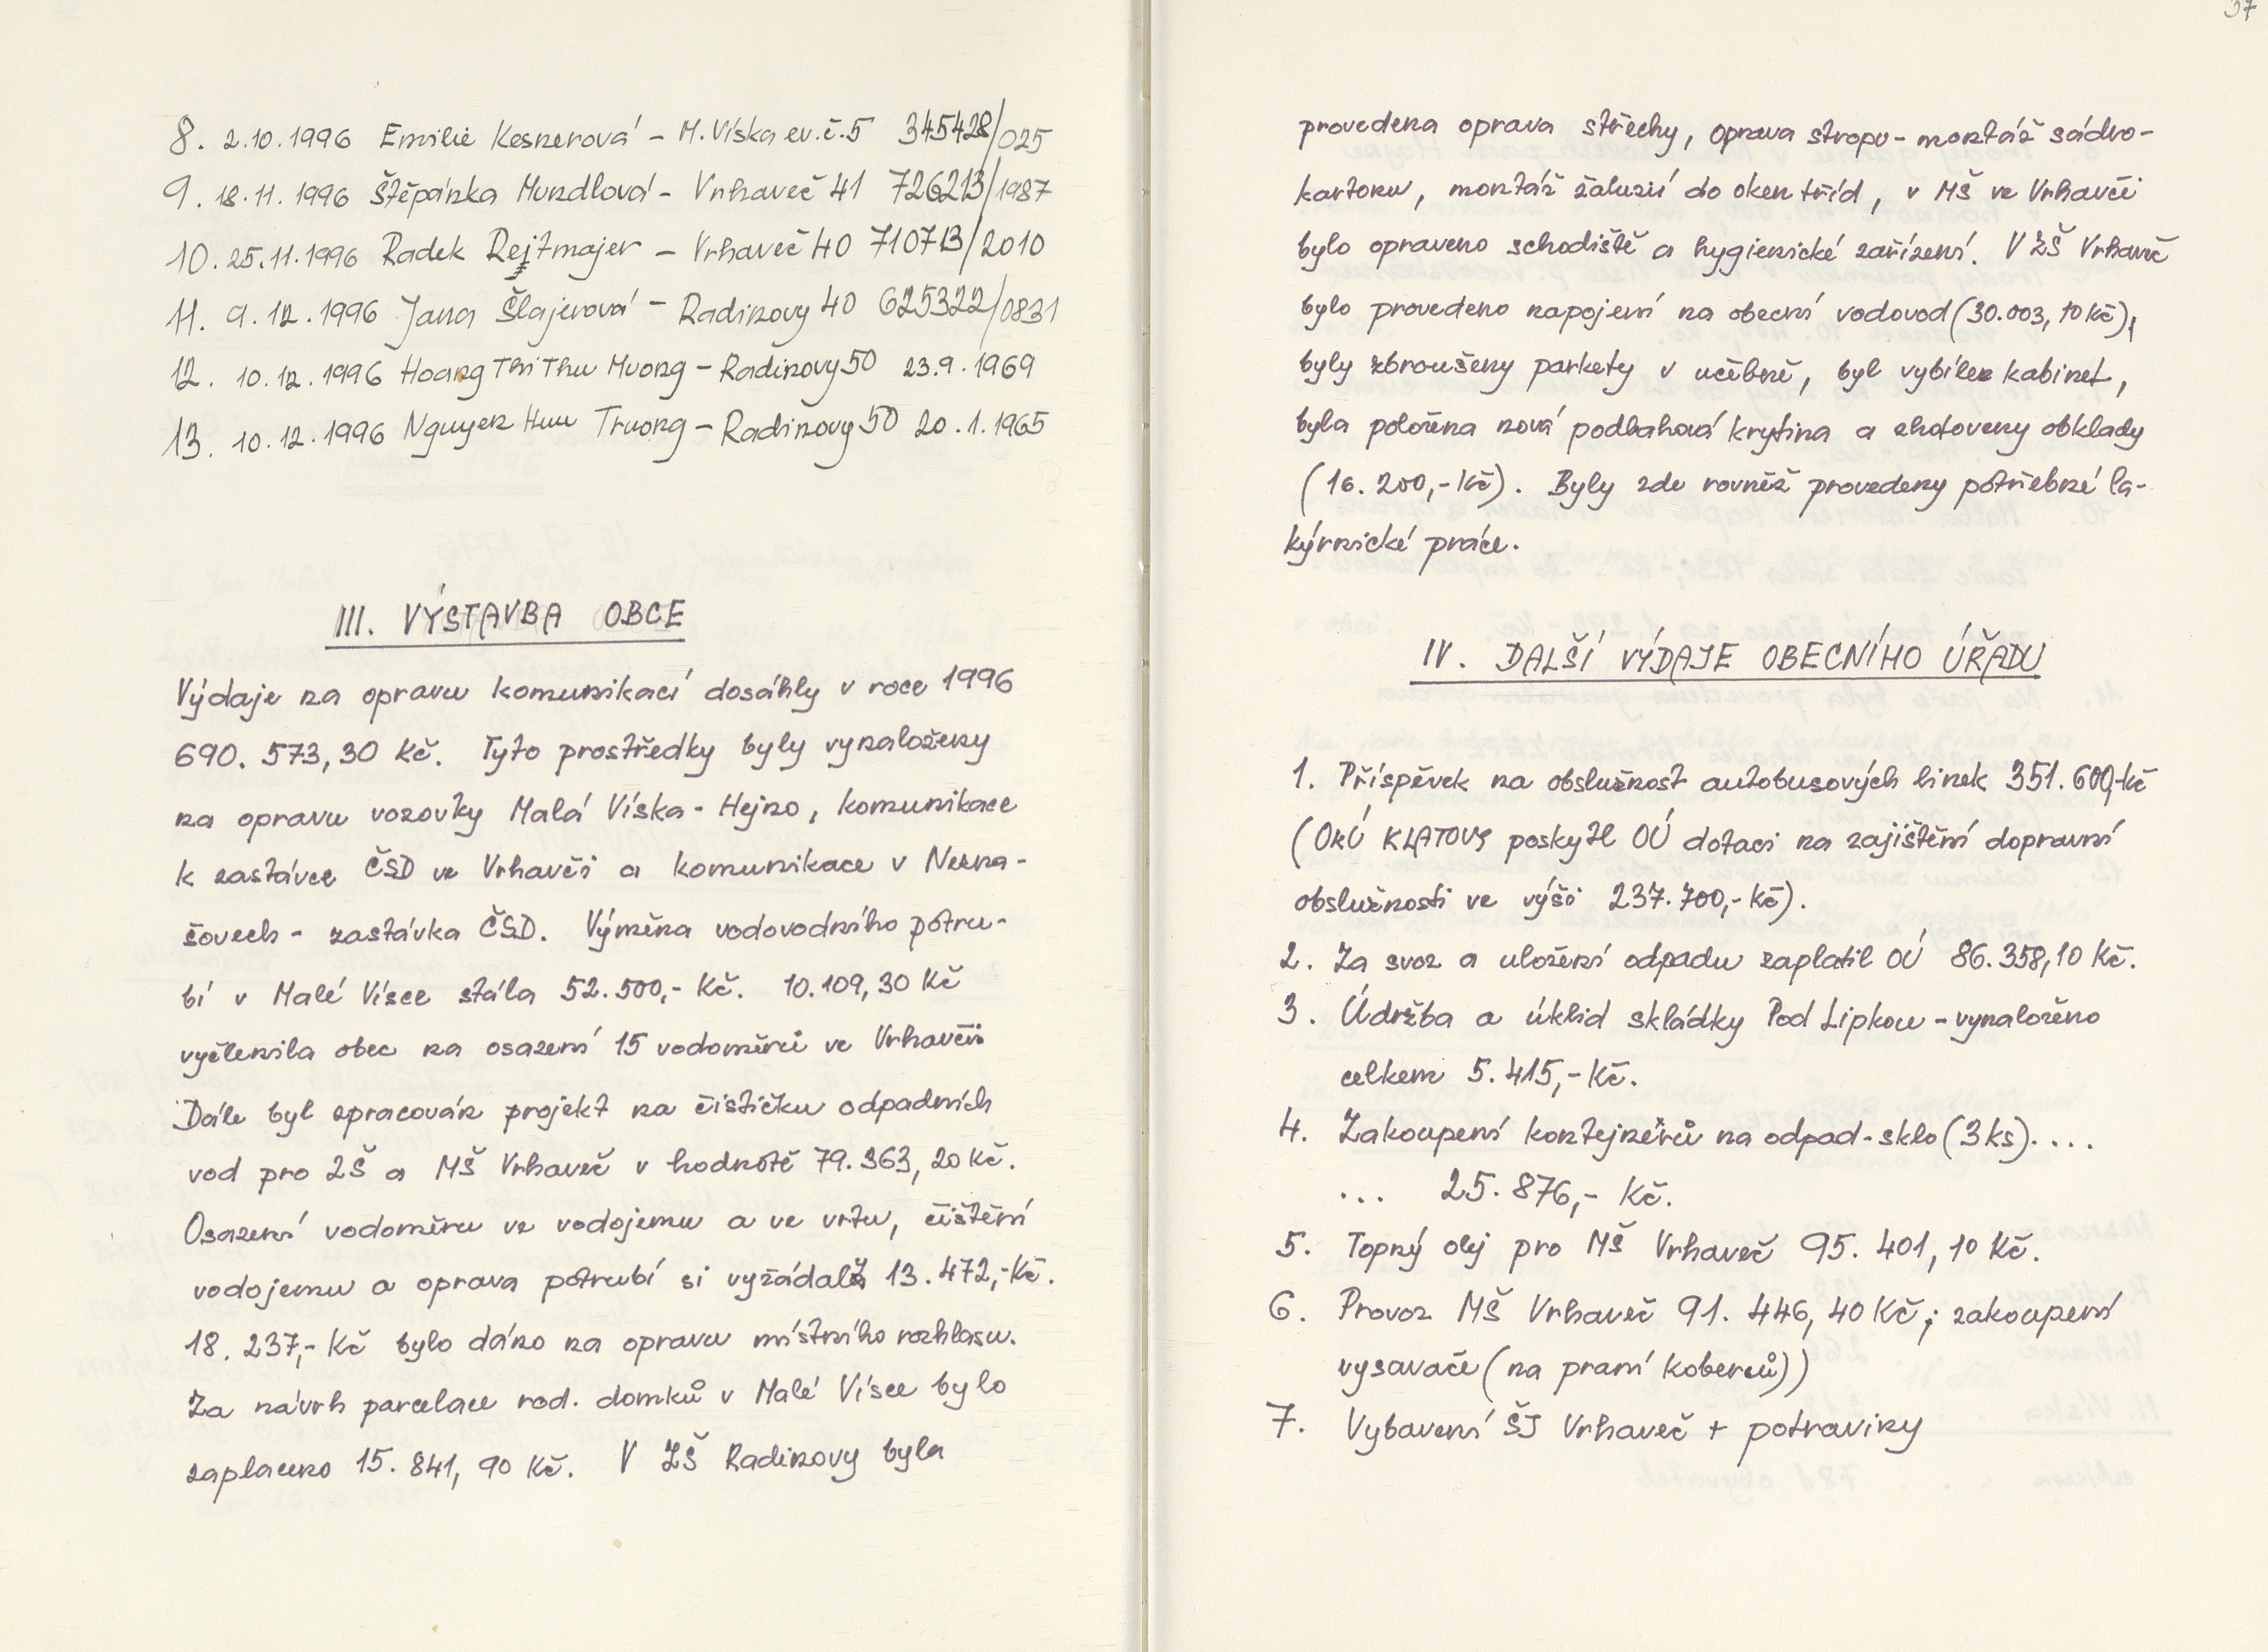 8. 2.10.1996 Emilie Kesnerová - M. Víska ev.č.5 345428/025
9. 18.11.1996 Štěpánka Mundlová - Vrhaveč 41 726213/1987
10. 25.11.1996 Radek Rejtmajer - Vrhaveč 40 710713/2010
11. 9.12.1996 Jana Šlajerová - Radinovy 40 625322/0831
12. 10.12.1996 Hoang Thi Thu Muong - Radinovy 50 23.9.1969
13. 10.12.1996 Nguyen Huu Truong - Radinovy 50 20.1.1965
III. VÝSTAVBA OBCE
Výdaje na opravu komunikací dosáhly v roce 1996
690.573,30 Kč. Tyto prostředky byly vynaloženy
na opravu vozovky Malá Víska - Hejno, komunikace
k zastávce ČSD ve Vrhavči a komunikace v Nezna-
šovech - zastávka ČSD. Výměna vodovodního potru-
bí v Malé Vísce stála 52.500,- Kč. 10.109,30 Kč
vyčlenila obec na osazení 15 vodoměrů ve Vrhavči.
Dále byl zpracován projekt na čističku odpadních
vod pro ZŠ a MŠ Vrhaveč v hodnotě 79.363,20 Kč.
Osazení vodoměru ve vodojemu a ve vrtu, čištění
vodojemu a oprava potrubí si vyžádaly 13.472,- Kč.
18.237,- Kč bylo dáno na opravu místního rozhlasu.
Za návrh parcelace rod. domků v Malé Vísce bylo
zaplaceno 15.841,90 Kč. V ZŠ Radinovy byla
37
provedena oprava střechy, oprava stropu - montáž sádro-
kartonu, montáž žaluzií do oken tříd, v MŠ ve Vrhavči
bylo opraveno schodiště a hygienické zařízení. V ZŠ Vrhaveč
bylo provedeno napojení na obecní vodovod (30.003,10 Kč),
byly zbroušeny parkety v učebně, byl vybílen kabinet,
byla položena nová podlahová krytina a zhotoveny obklady
(16.200,- Kč). Byly zde rovněž provedeny potřebné la-
kýrnické práce.
IV. DALŠÍ VÝDAJE OBECNÍHO ÚŘADU
1. Příspěvek na obslužnost autobusových linek 351.600,- Kč
(OkÚ KLATOVY poskytl OÚ dotaci na zajištění dopravní
obslužnosti ve výši 237.700,- Kč).
2. Za svoz a uložení odpadu zaplatil OÚ 86.358,10 Kč.
3. Údržba a úklid skládky Pod Lipkou - vynaloženo
celkem 5.415,- Kč.
4. Zakoupení kontejnérů na odpad - sklo (3 ks)....
... 25.876,- Kč.
5. Topný olej pro MŠ Vrhaveč 95.401,10 Kč.
6. Provoz MŠ Vrhaveč 91.446,40 Kč; zakoupení
vysavače (na praní koberců))
7. Vybavení ŠJ Vrhaveč + potraviny